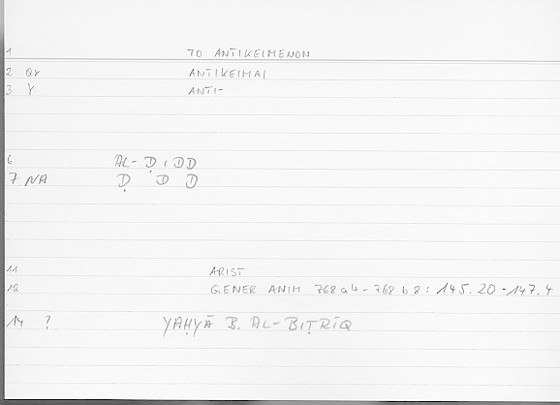 1 TO ANTIKEIMENON
2 Qr ANTIKEIMAI
3 Y ANTI-
6 AL-ḌIDD
7 NA Ḍ D D
11 ARIST
12 GENER ANIM 768a4-768b8: 145.20-147.4
14 ? YAḤYĀ B. AL-BIṬRĪQ